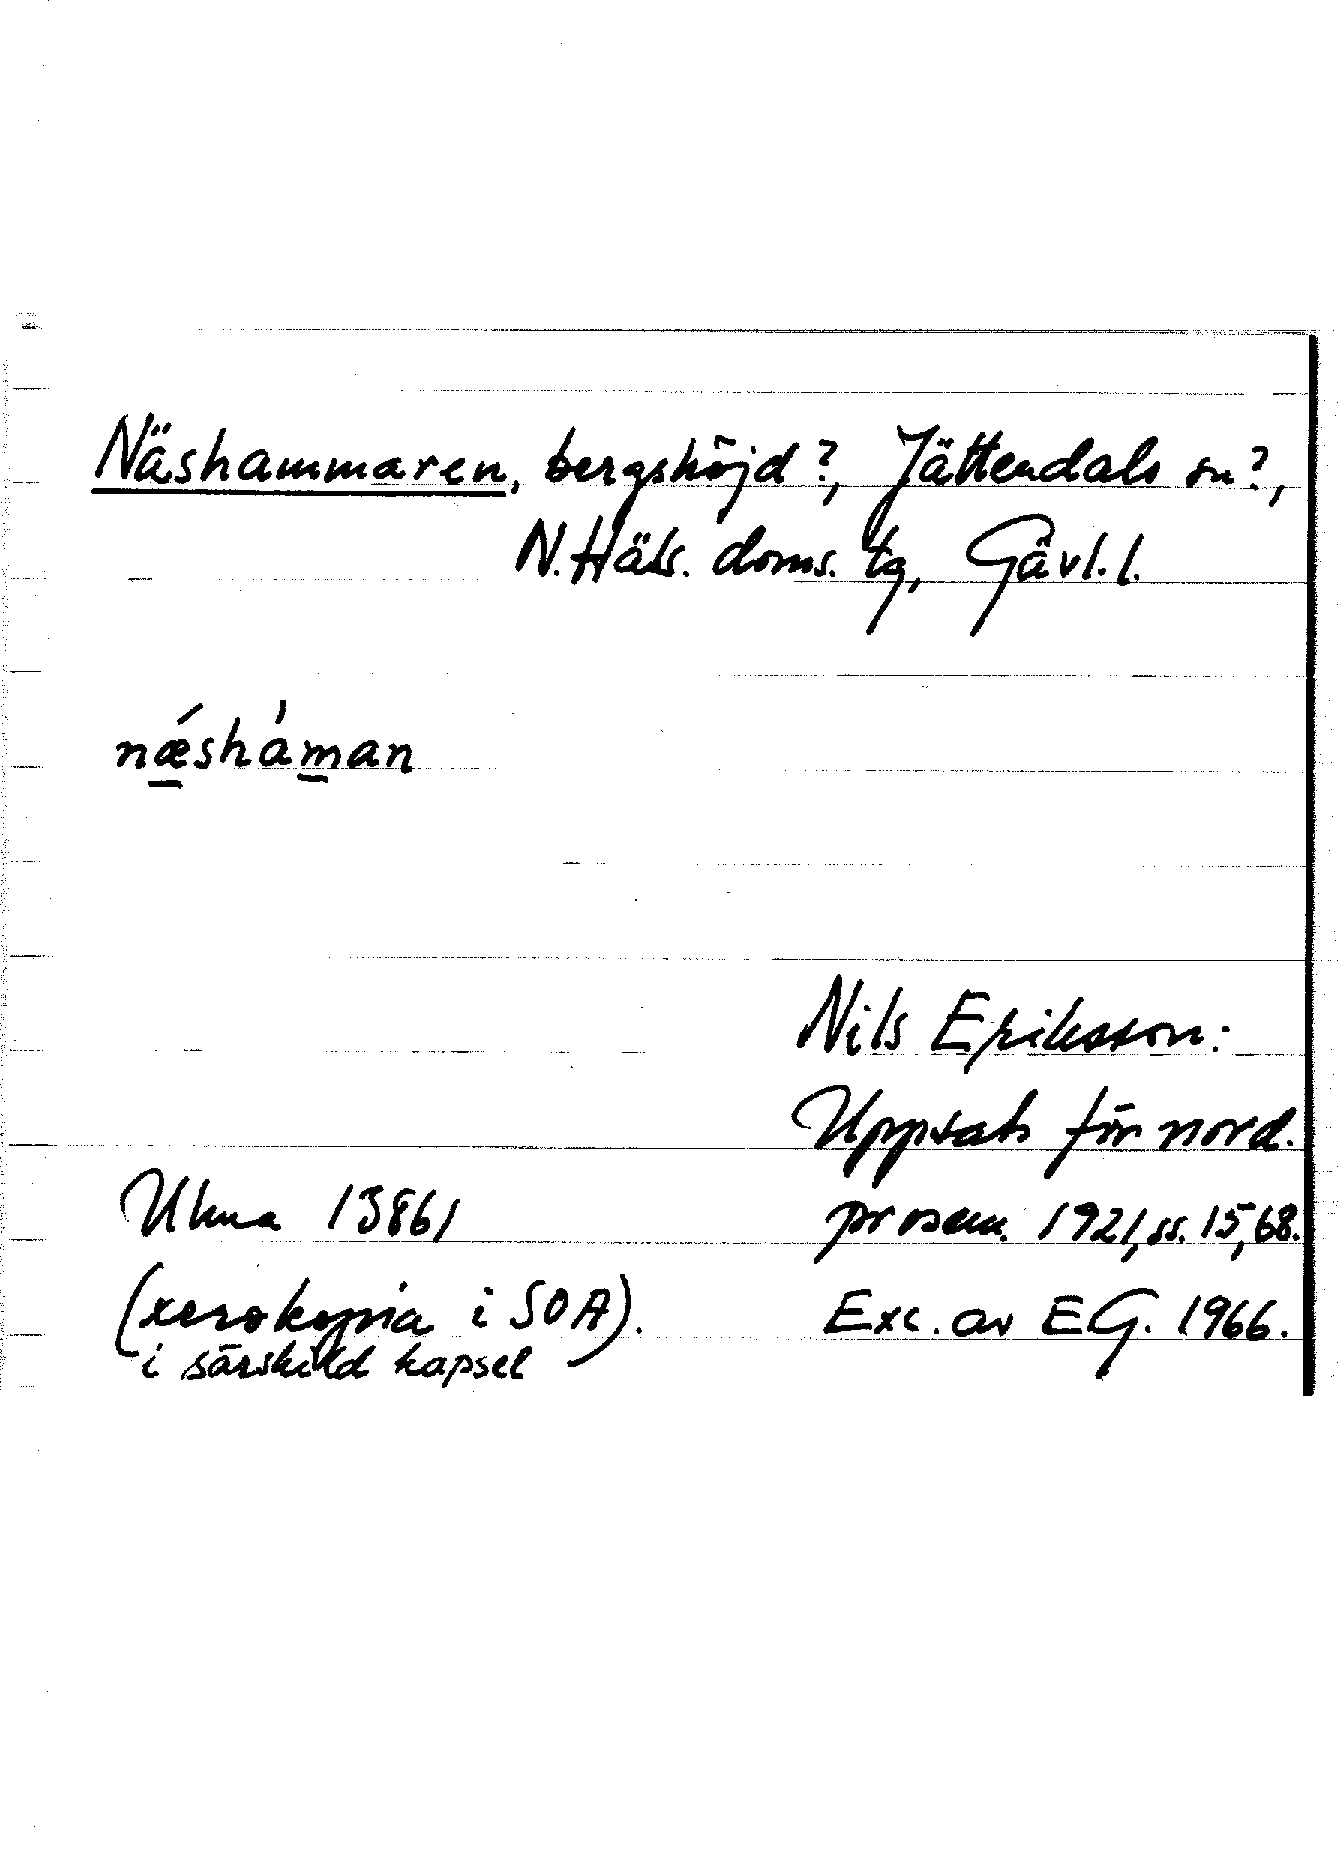 Näshammaren, bergshöjd?, Jättendals sn?,
N. Häls. doms. tg, Gävl. l.
nǽ̲shám̲an
Nils Eriksson:
Uppsats för nord.
prosem. 1921, ss. 15, 68.
Exc. av EG. 1966.
Ulma 13861
(xerokopia i SOA).
i särskild kapsel